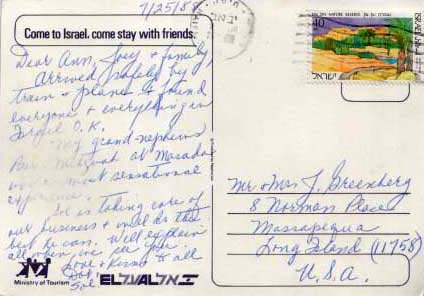 7/25/88
Come to Israel, come stay with friends.
Dear Ann, Joey & family,
Arrived safely by
train & plane & found
everyone & everything in
Israel O.K.
My grand-nephews
Bar Mitzvah at Masada
was a most sensational
experience.
Sol is taking care of
our business & will do the
best he can. Will explain
all when we see you.
Love & Kisses to all
Sol
Ministry of Tourism
EL AL אל על
EIN ZIN NATURE RESERVE
40
ISRAEL
ישראל
Mr & Mrs J. Greenberg
8 Norman Place
Massapequa
Long Island (11758)
U.S.A.